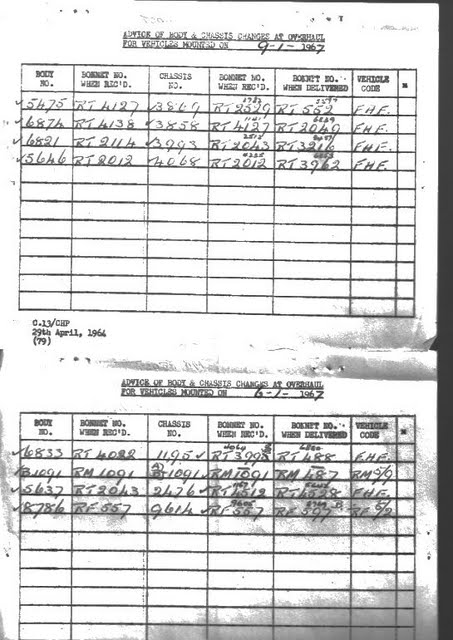 ADVICE OF BODY & CHASSIS CHANGES AT OVERHAUL
FOR VEHICLES MOUNTED ON 9-1-1967
BODY NO. BONNET NO. WHEN REC'D. CHASSIS NO. BONNET NO. WHEN REC'D. BONNET NO. WHEN DELIVERED VEHICLE CODE
✓5475 RT 4127 ✓3869 RT 2529 RT 552 FHF.
✓6874 RT 4138 ✓3858 RT 4127 RT 2049 FHF.
✓6821 RT 2114 ✓3993 RT 2043 RT 3216 FHF.
✓5646 RT 2012 ✓4068 RT 2012 RT 3962 FHF.
C.13/CHP
29th April, 1964
(79)
ADVICE OF BODY & CHASSIS CHANGES AT OVERHAUL
FOR VEHICLES MOUNTED ON 6-1-1967
BODY NO. BONNET NO. WHEN REC'D. CHASSIS NO. BONNET NO. WHEN REC'D. BONNET NO. WHEN DELIVERED VEHICLE CODE
✓6833 RT 4022 1195 ✓ RT 3998 RT 488 FHF.
✓B1091 RM 1091 1091 RM 1091 RM 487 RM 5/9
✓5637 RT 2043 2476 ✓ RT 4512 RT 4528 FHF.
✓8786 RF 557 9614 ✓ RF 557 RF 597 RF 5/2